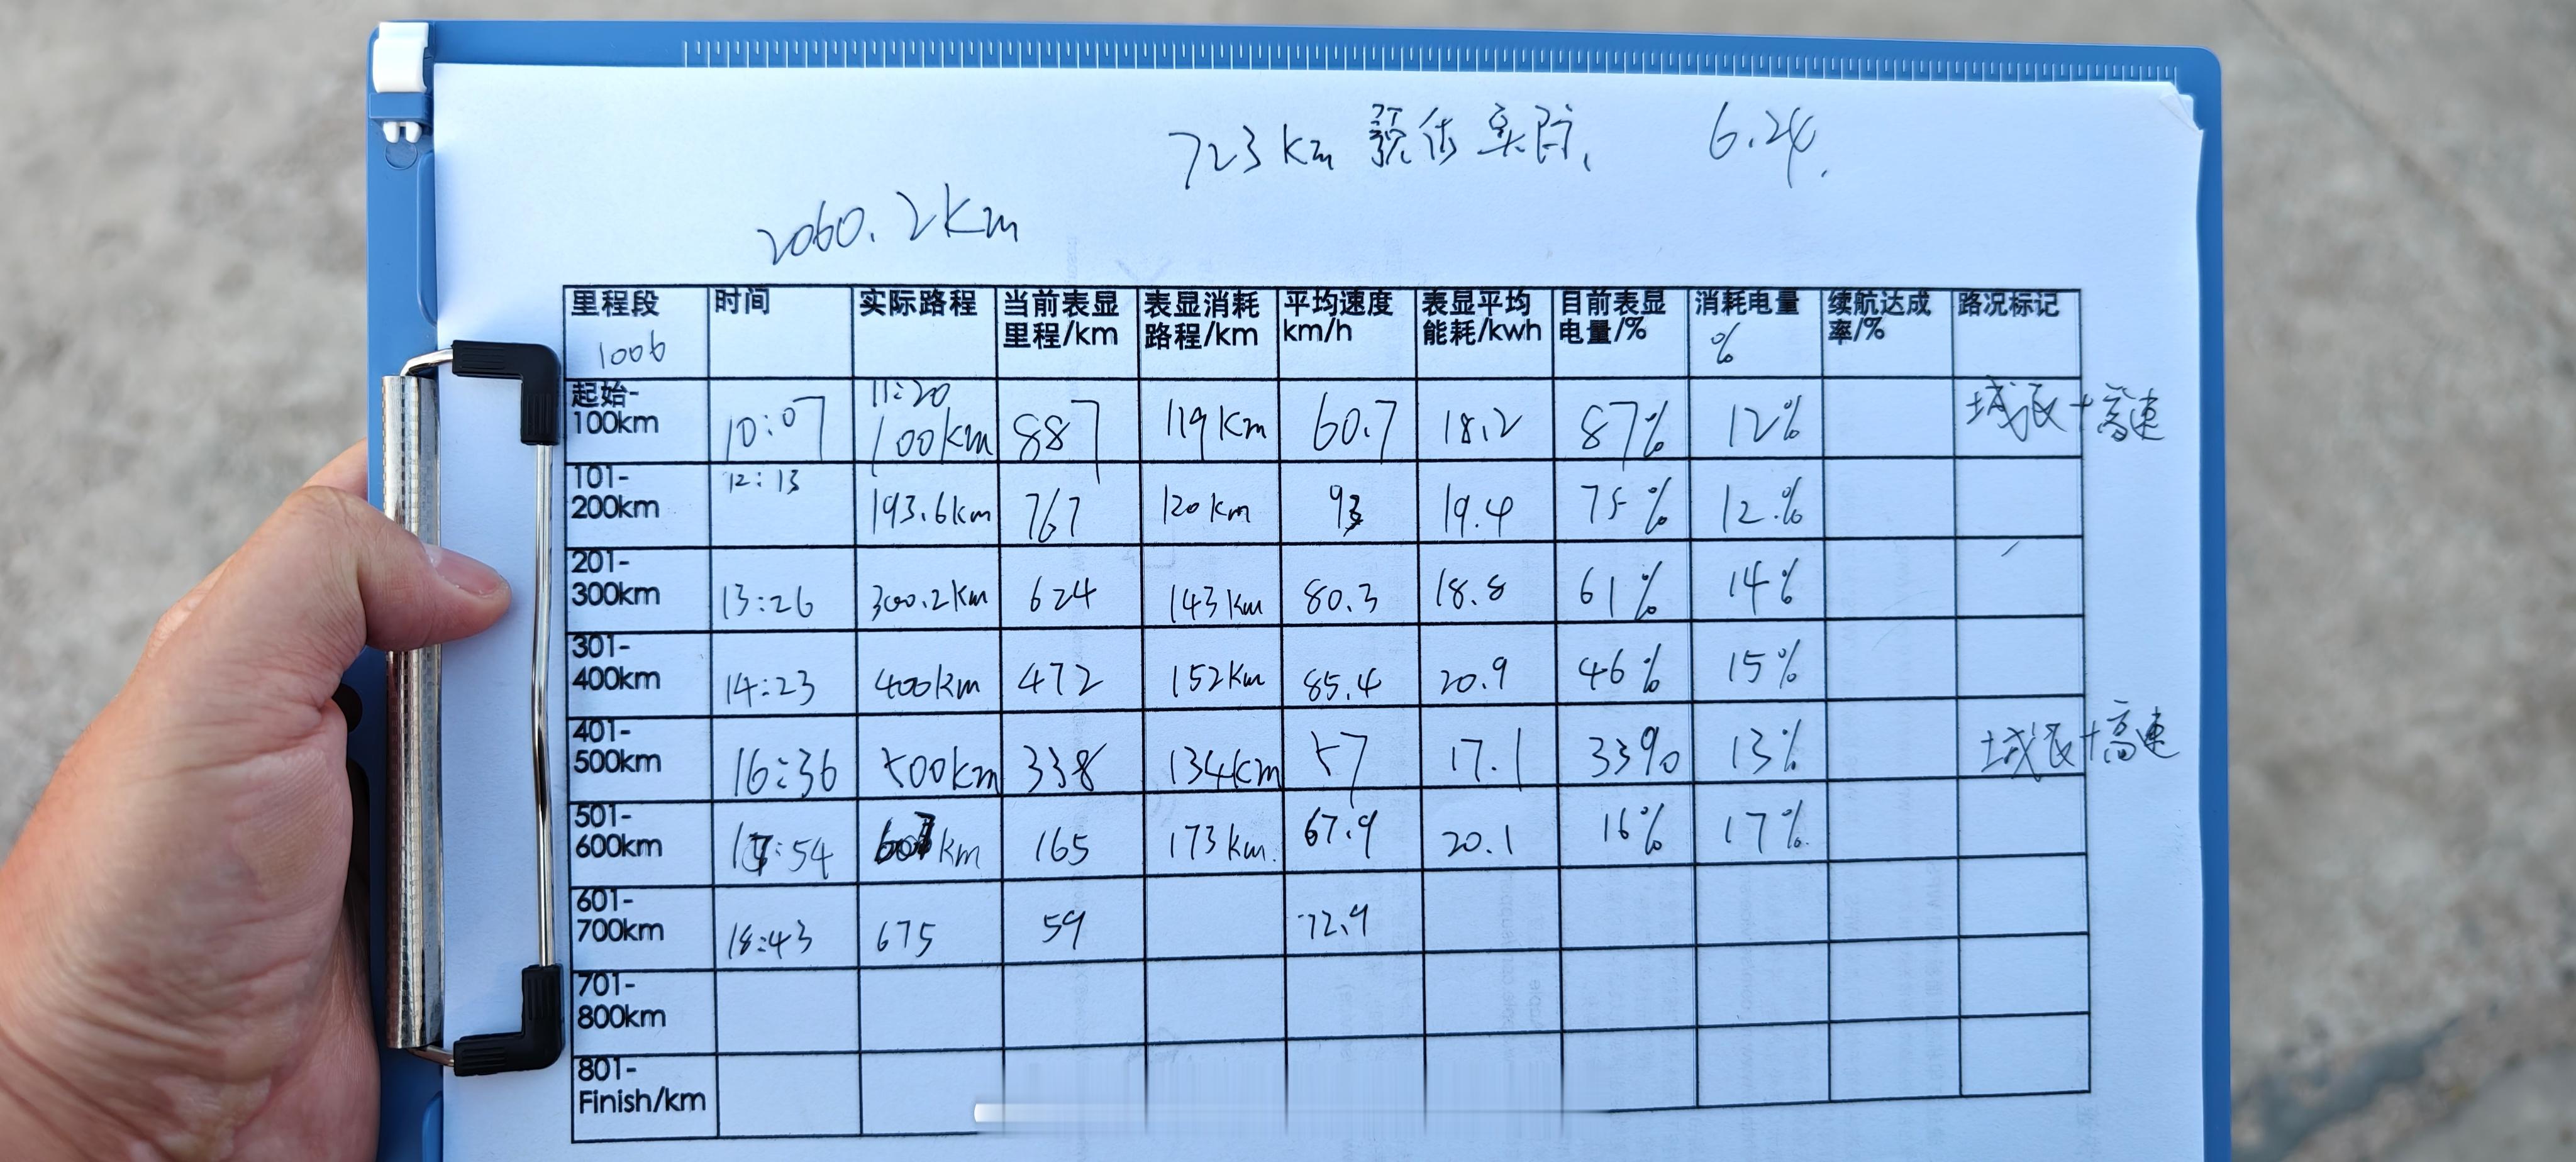 723km 预估实际、 6.24.
2060.2km
里程段 时间 实际路程 当前表显里程/km 表显消耗路程/km 平均速度km/h 表显平均能耗/kwh 目前表显电量/% 消耗电量 % 续航达成率/% 路况标记
1006
起始-100km 10:07 11:20 100km 887 119km 60.7 18.2 87% 12% 城区+高速
101-200km 12:13 193.6km 767 120km 93 19.4 75% 12% 
201-300km 13:26 300.2km 624 143km 80.3 18.8 61% 14%
301-400km 14:23 400km 472 152km 85.4 20.9 46% 15%
401-500km 16:36 500km 338 134km 57 17.1 33% 13% 城区+高速
501-600km 17:54 km 165 173km. 67.9 20.1 16% 17%
601-700km 18:43 675 59 72.9
701-800km
801-Finish/km